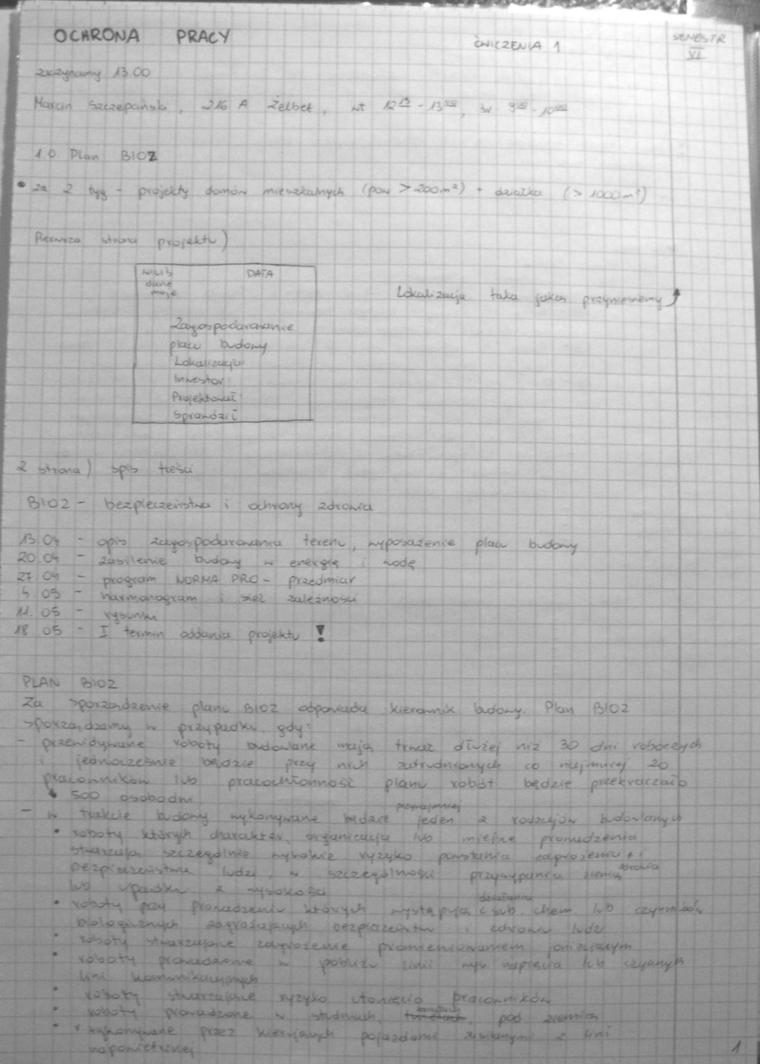 OCHRONA PRACY
ĆWICZENIA 1
SEMESTR
VI
zaczynamy 13.00
Marcin Szczepański, 216 A Żelbet,
1.0. Plan BIOZ
• za 2 tyg - projekty domów mieszkalnych (pow > 200m²) + działka (> 1000m²)
Pierwsza strona projektu)
DATA
dane
moje
Lokalizacja taka jakaś przyziemny
Zagospodarowanie
placu budowy
Lokalizacja:
Inwestor:
Projektował:
Sprawdził
2 strona) spis treści
BIOZ - bezpieczeństwa i ochrony zdrowia
13.04 - opis zagospodarowania terenu, wyposażenie placu budowy
20.04 - zasilenie budowy w energię i wodę
27.04 - program NORMA PRO - przedmiar
4.05 - harmonogram i sieć zależności
11.05 - rysunki
18.05 - I termin oddania projektu !
PLAN BIOZ
Za sporządzenie planu BIOZ odpowiada kierownik budowy. Plan BIOZ
sporządzamy w przypadku gdy:
- przewidywane roboty budowlane mają trwać dłużej niż 30 dni roboczych
i jednocześnie będzie przy nich zatrudnionych co najmniej 20
pracowników lub pracochłonność planu robót będzie przekraczało
500 osobodni
- w trakcie budowy wykonywane będzie przynajmniej jeden z rodzajów budowlanych
• roboty których charakter, organizacja lub miejsce prowadzenia
stwarzają szczególnie wysokie ryzyko powstania zagrożenia
bezpieczeństwa i zdrowia ludzi, w szczególności przysypania ziemią
lub upadku z wysokości
• roboty przy prowadzeniu których występują działania sub. chem. lub czynników
biologicznych zagrażających bezpieczeństwu i zdrowiu ludzi
• roboty stwarzające zagrożenie promieniowaniem jonizującym
• roboty prowadzone w pobliżu linii wys. napięcia lub czynnych
linii komunikacyjnych
• roboty stwarzające ryzyko utonięcia pracowników
• roboty prowadzone w studniach, pod ziemią
• wykonywane przez kierujących pojazdami zasilanymi z linii
napowietrznej
1